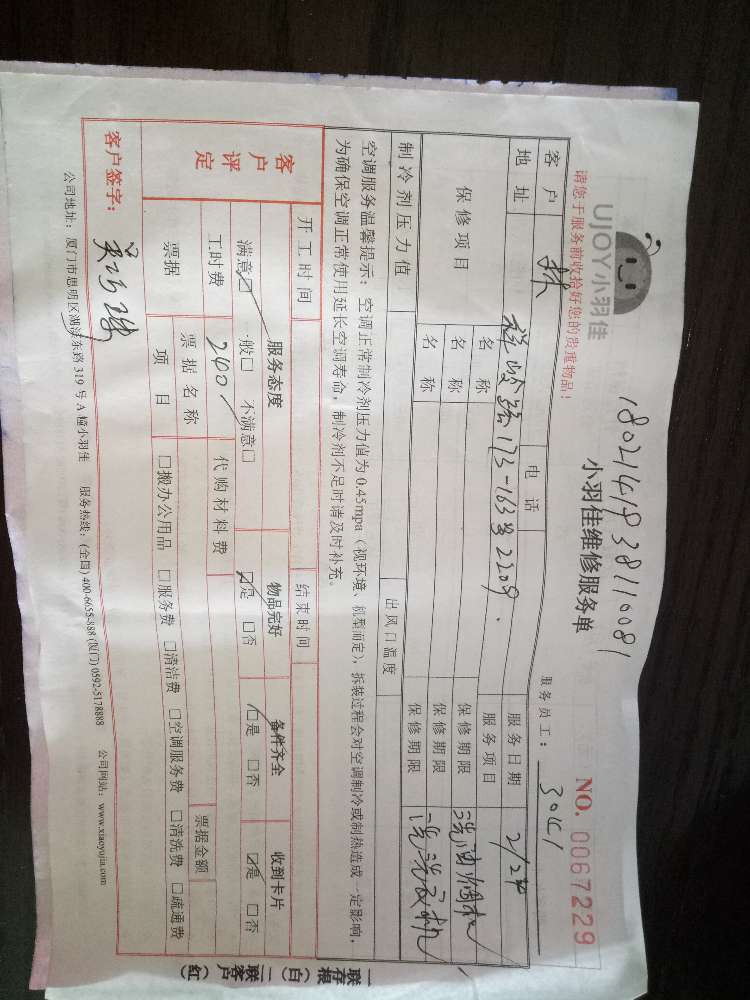 18021419381110081
UJOY小羽佳
小羽佳维修服务单
NO. 0067229
请您于服务前收拾好您的贵重物品!
服务员工: 3041
客户 林 电话 服务日期 2/24
地址 173-163号2209. 服务项目
保修项目 名称 保修期限 洗油烟机
名称 保修期限 洗洗衣机
名称 保修期限
制冷剂压力值 出风口温度
空调服务温馨提示: 空调正常制冷剂压力值为0.45mpa (视环境、机型而定), 拆装过程会对空调制冷或制热造成一定影响,
为确保空调正常使用延长空调寿命, 制冷剂不足时请及时补充。
开工时间 结束时间
客户评定 服务态度 物品完好 备件齐全 收到卡片
满意☑ 一般□ 不满意□ ☑是 □否 ☑是 □否 ☑是 □否
工时费 240 代购材料费 票据金额
票据 票据名称
项目 □搬办公用品 □服务费 □清洁费 □空调服务费 □清洗费 □疏通费
客户签字:
公司地址: 厦门市思明区湖滨东路319号A幢小羽佳 服务热线: (全国) 400-6655-888 (厦门) 0592-5178888 公司网站: www.xiaoyujia.com
一联存根(白) 二联客户(红)